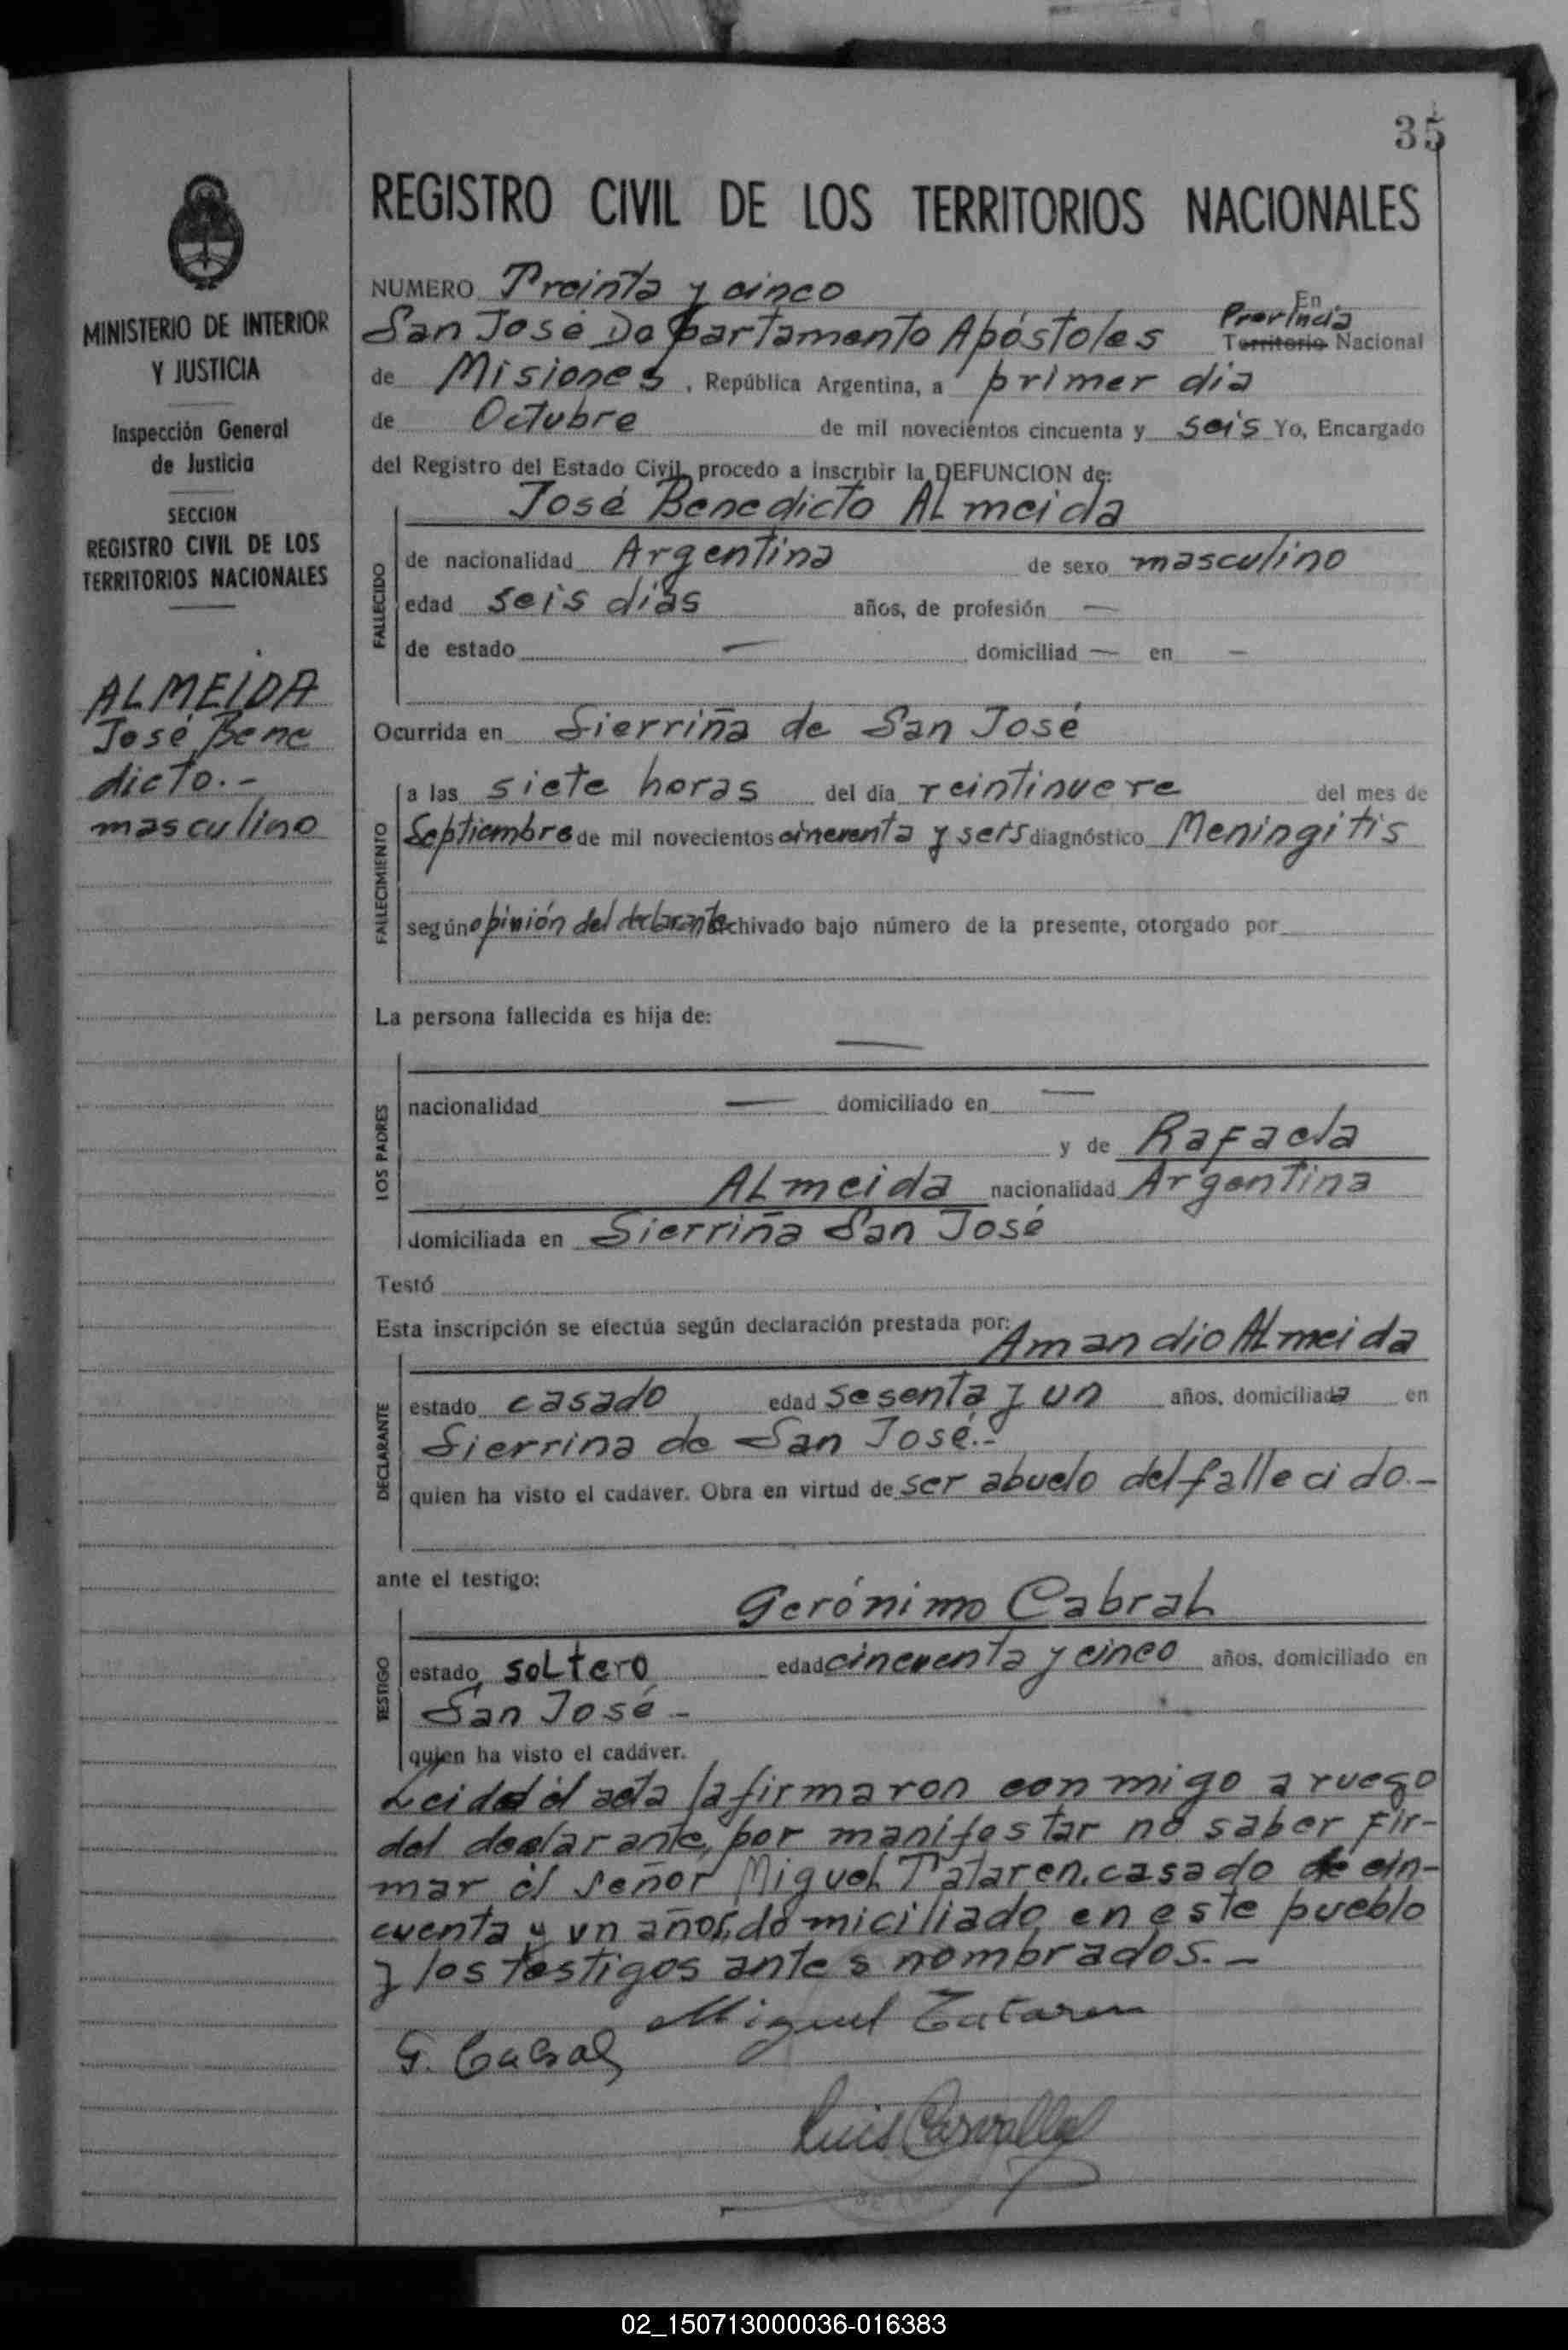 35
REGISTRO CIVIL DE LOS TERRITORIOS NACIONALES
MINISTERIO DE INTERIOR
Y JUSTICIA
Inspección General
de Justicia
SECCION
REGISTRO CIVIL DE LOS
TERRITORIOS NACIONALES
ALMEIDA
José Bene
dicto.-
masculino
NUMERO Treinta y cinco En
San José Departamento Apóstoles Provincia Territorio Nacional
de Misiones, República Argentina, a primer día
de Octubre de mil novecientos cincuenta y seis Yo, Encargado
del Registro del Estado Civil, procedo a inscribir la DEFUNCION de:
José Benedicto ALmeida
FALLECIDO
de nacionalidad Argentina de sexo masculino
edad seis días años, de profesión —
de estado — domiciliad — en —
Ocurrida en Sierriña de San José
FALLECIMIENTO
a las siete horas del día veintinueve del mes de
Septiembre de mil novecientos cincuenta y seis diagnóstico Meningitis
según opinión del declarante archivado bajo número de la presente, otorgado por
La persona fallecida es hija de:
—
LOS PADRES
nacionalidad — domiciliado en —
y de Rafaela
ALmeida nacionalidad Argentina
domiciliada en Sierriña San José
Testó
Esta inscripción se efectúa según declaración prestada por:
Amandio ALmeida
DECLARANTE
estado casado edad sesenta y un años, domiciliada en
Sierrina de San José.-
quien ha visto el cadáver. Obra en virtud de ser abuelo del fallecido.-
ante el testigo:
Gerónimo Cabral
TESTIGO
estado soltero edad cincuenta y cinco años, domiciliado en
San José -
quien ha visto el cadáver.
Leida el acta la firmaron conmigo a ruego
del declarante, por manifestar no saber fir-
mar el señor Miguel Tataren, casado de cin-
cuenta y un años, domiciliado en este pueblo
y los testigos antes nombrados.-
Miguel Tataren
G. Cabral
Luis Carvallo
02_150713000036-016383